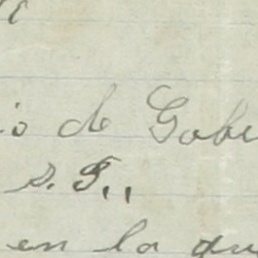 io de Gobe
S. S.,,
en la qu